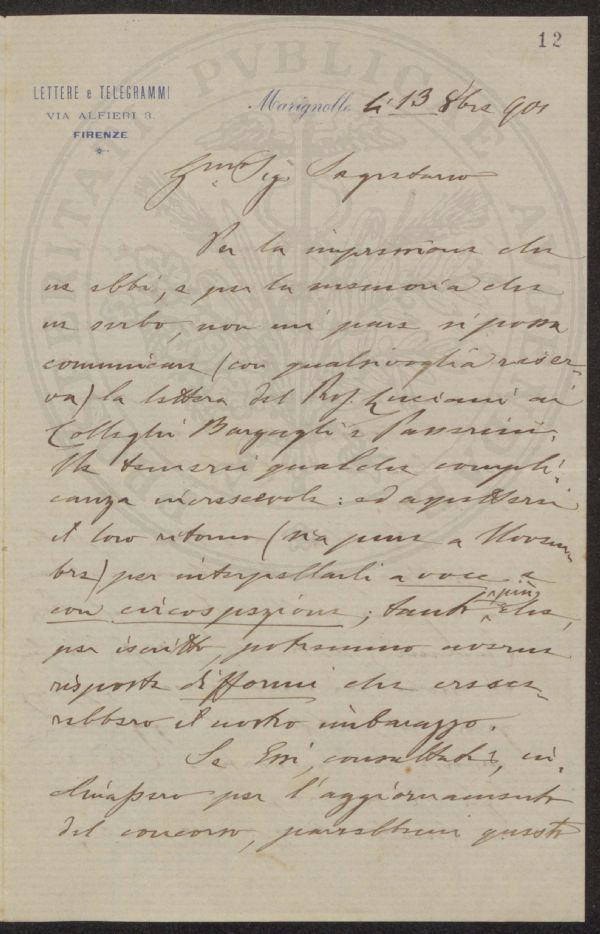 12
LETTERE e TELEGRAMMI
VIA ALFIERI 3.
FIRENZE
Marignolle li 13 8bre 901
Sig. Segretario
Per la impressione che
ne ebbi, e per la memoria che
ne serbo, non mi pare si possa
comunicare (con qualsivoglia riser-
va) la lettera del Prof. Luciani ai
Colleghi Bargagli e Passerini.
Ne temerei qualche compli-
canza incresevole: ed aspetterei
il loro ritorno (sia pure a Novem-
bre) per interpellarli a voce e
con circospezione; tanto più che,
per iscritto, potremmo averne
risposte difformi che cresce-
rebbero il nostro imbarazzo.
Se Essi, consultati, in-
clinassero per l'aggiornamento
del concorso, parrebbemi questo